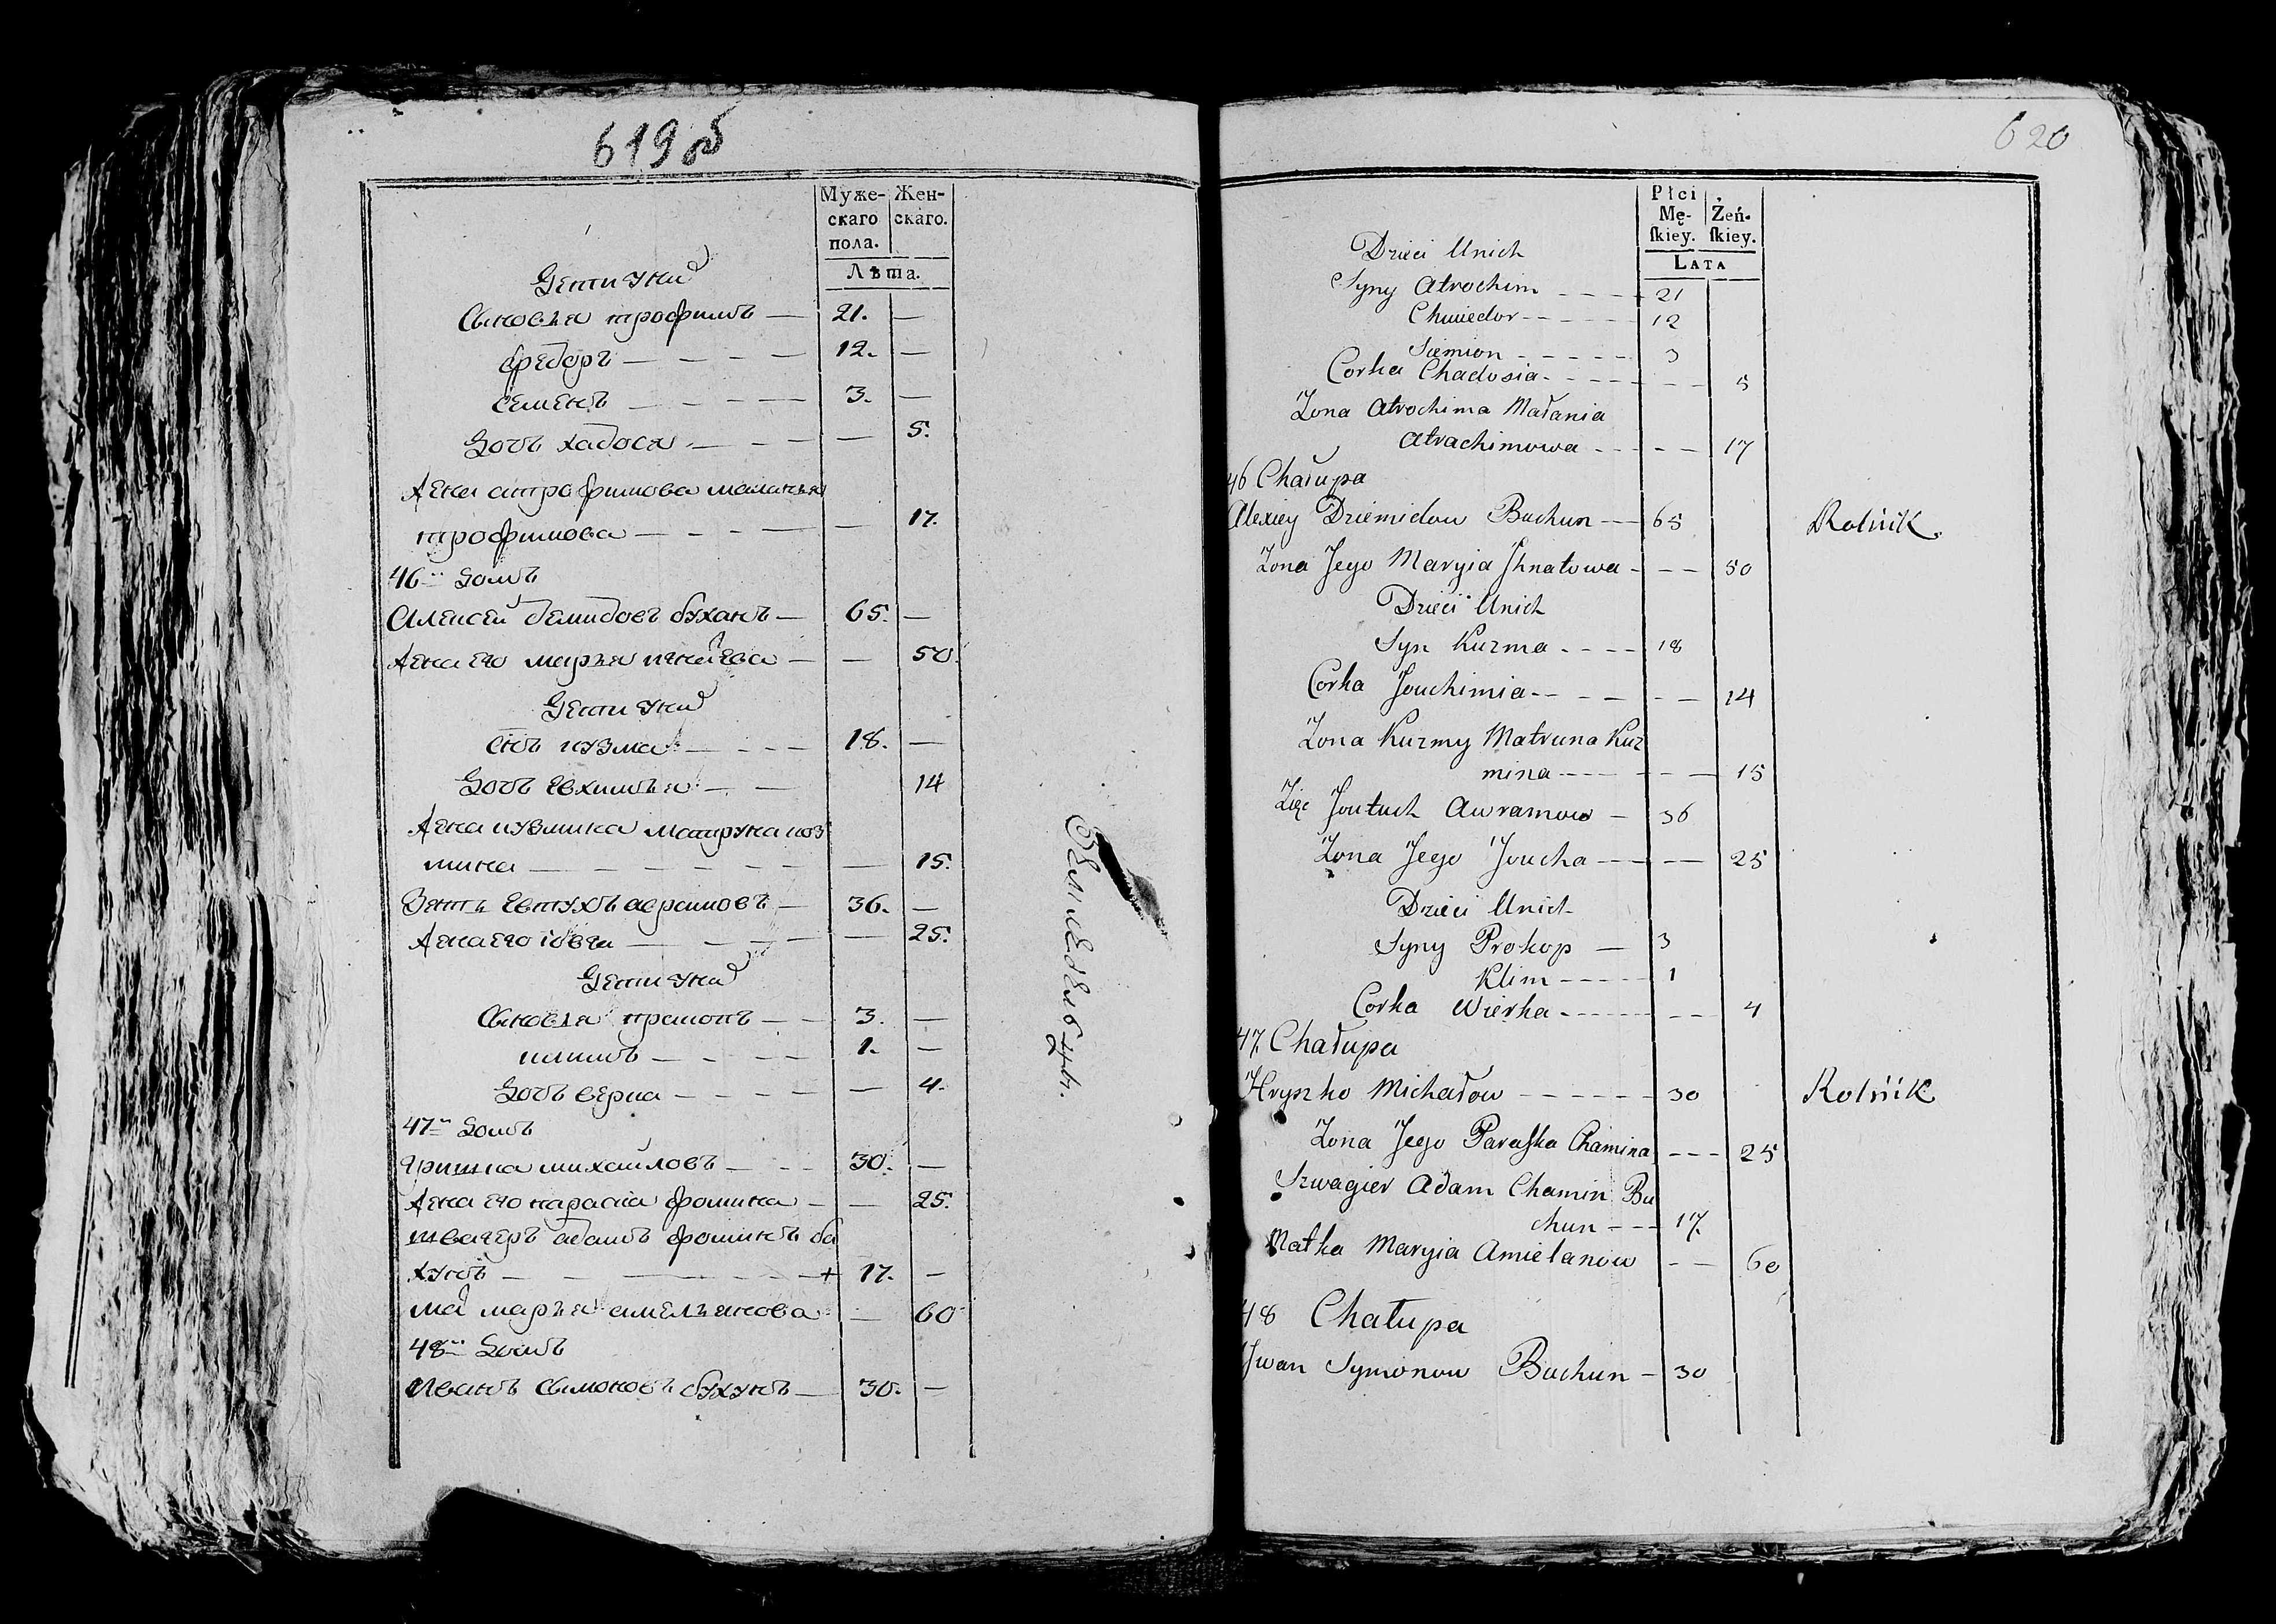 619 об
Муже- Жен-
скаго скаго.
пола.
Лѣта.
Дети ихъ
Сыновья трофимъ — 21. —
федоръ — — — — 12. —
семенъ — — — — 3. —
Дочь хадося — — — — 5.
Жена атрофимова маланья
трофимова — — — — 17.
46й Домъ
Алексей демидовъ бухунъ — 65. —
Жена его марья игнатева — — 50.
Дети ихъ
снъ кузма — — — 18. —
Дочь евхимья — — 14
Жена кузмина матруна куз
мина — — — — — — — 15.
Зять евтухъ аврамовъ — 36. —
Жена его іовга — — — — — 25.
Дети ихъ
Сыновья пракопъ — — 3. —
климъ — — — — 1. —
Дочь верка — — — — — 4.
47й Домъ
гришка михайловъ — — — 30. —
Жена его параска фомина — — 25.
швагеръ адамъ фоминъ бу
хунъ — — — — — — + 17. —
мать марья амельянова — 60
48й Домъ
Иванъ симоновъ бухунъ — 30. —
Земледельцы.
620
Płci
Mę- Żeń-
ſkiey. ſkiey.
LATA
Dzieci Unich
Syny Atrochim - - - - 21
Chwiedor - - - - - 12
Siemion - - - - - 3
Corka Chadosia - - - - - - - 5
Zona Atrochima Małania
Atrachimowa - - - - - 17
46 Chałupa
Alexiey Dziemidow Buchun - - 65 Rolnik.
Zona Jego Maryia Jhnatowa - - - 50
Dzieci Unich
Syn Kuzma - - - - 18
Corka Jouchimia - - - - - - 14
Zona Kuzmy Matruna Kuz
mina - - - - - - 15
Zięc Joutuch Awramow - 36
Zona Jego Joucha - - - - - 25
Dzieci Unich
Syny Prokop — 3
Klim - - - - - 1
Corka Wierka - - - - - - - 4
47. Chałupa
Hryszko Michałow - - - - - - 30 Rolnik
Zona Jego Paraſka Chamina - - - 25
Szwagier Adam Chamin Bu
chun - - - 17.
Matka Maryia Amielanow - - 60
48 Chałupa
Jwan Symonow Buchun - 30